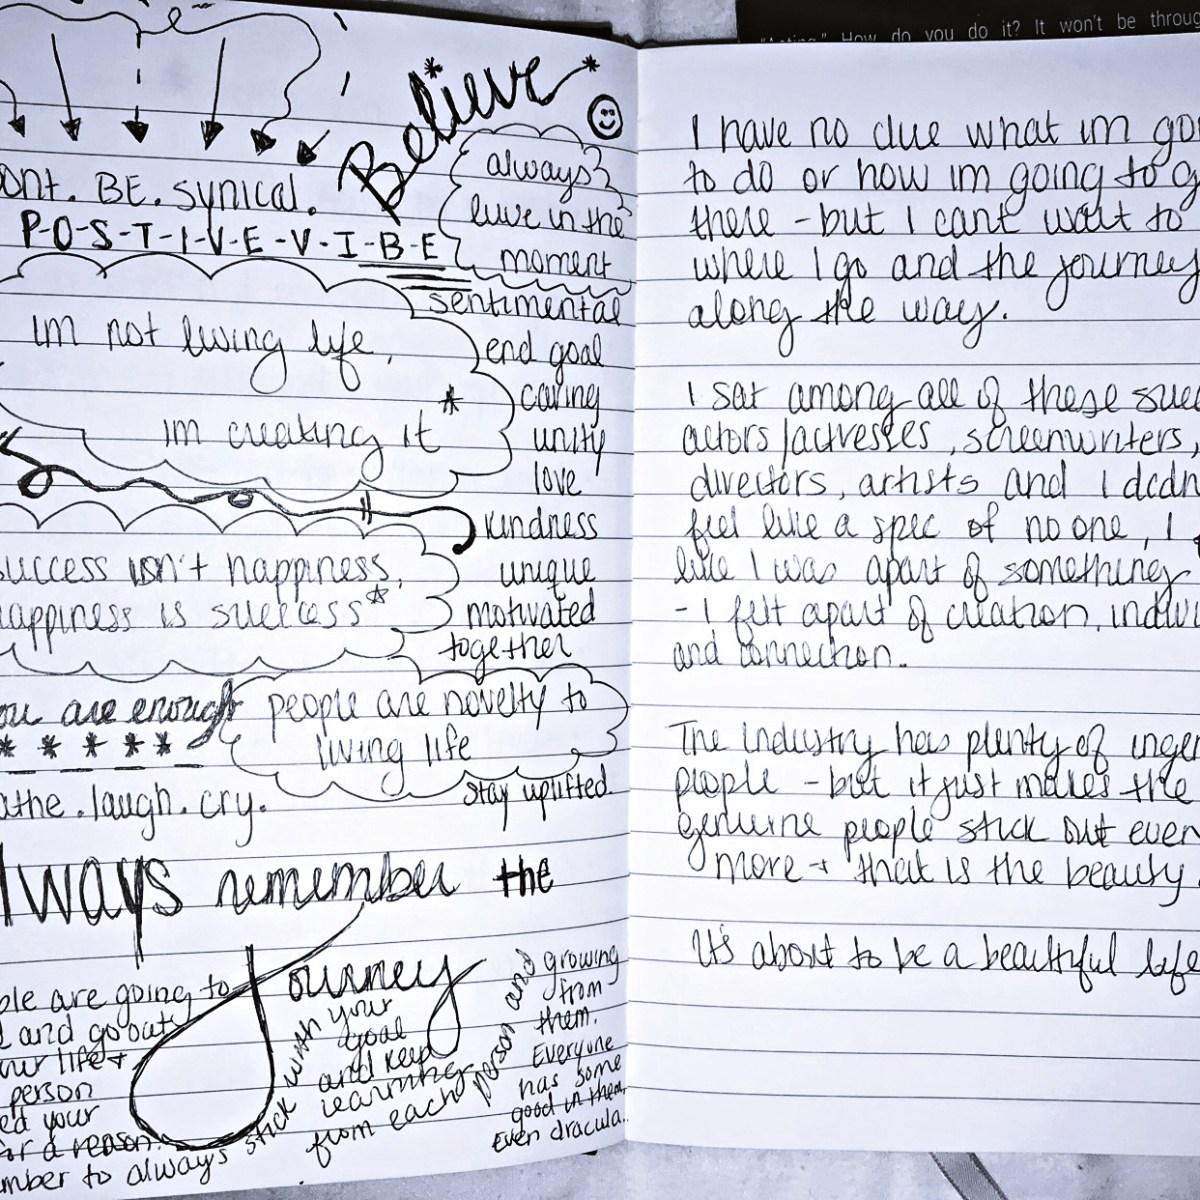 "Acting." How do you do it? It won't be throug
Believe
ont. BE. synical.
P-O-S-T-I-V-E-V-I-B-E
always
luve in the
moment
sentimental
end goal
caring
unity
love
kindness
unique
motivated
together
im not living life,
im creating it
success isn't happiness,
happiness is success
ou are enough
people are novelty to
living life
stay uplifted.
athe. laugh. cry.
lways remember the
Journey
ple are going to
and go out
ur life +
person
ed your
for a reason.
mber to always stick with your
goal
and keep
learning
from each person and growing
from
them.
Everyone
has some
good in them,
Even dracula.
I have no clue what im goi
to do or how im going to g
there - but I cant wait to
where I go and the journey
along the way.
I sat among all of these succ
actors/actresses, screenwriters,
directors, artists and I didn
feel like a spec of no one, I f
like I was apart of something
- I felt apart of creation, indivi
and connection.
The industry has plenty of ingen
people - but it just makes the
genuine people stick out even
more + that is the beauty.
It's about to be a beautiful life